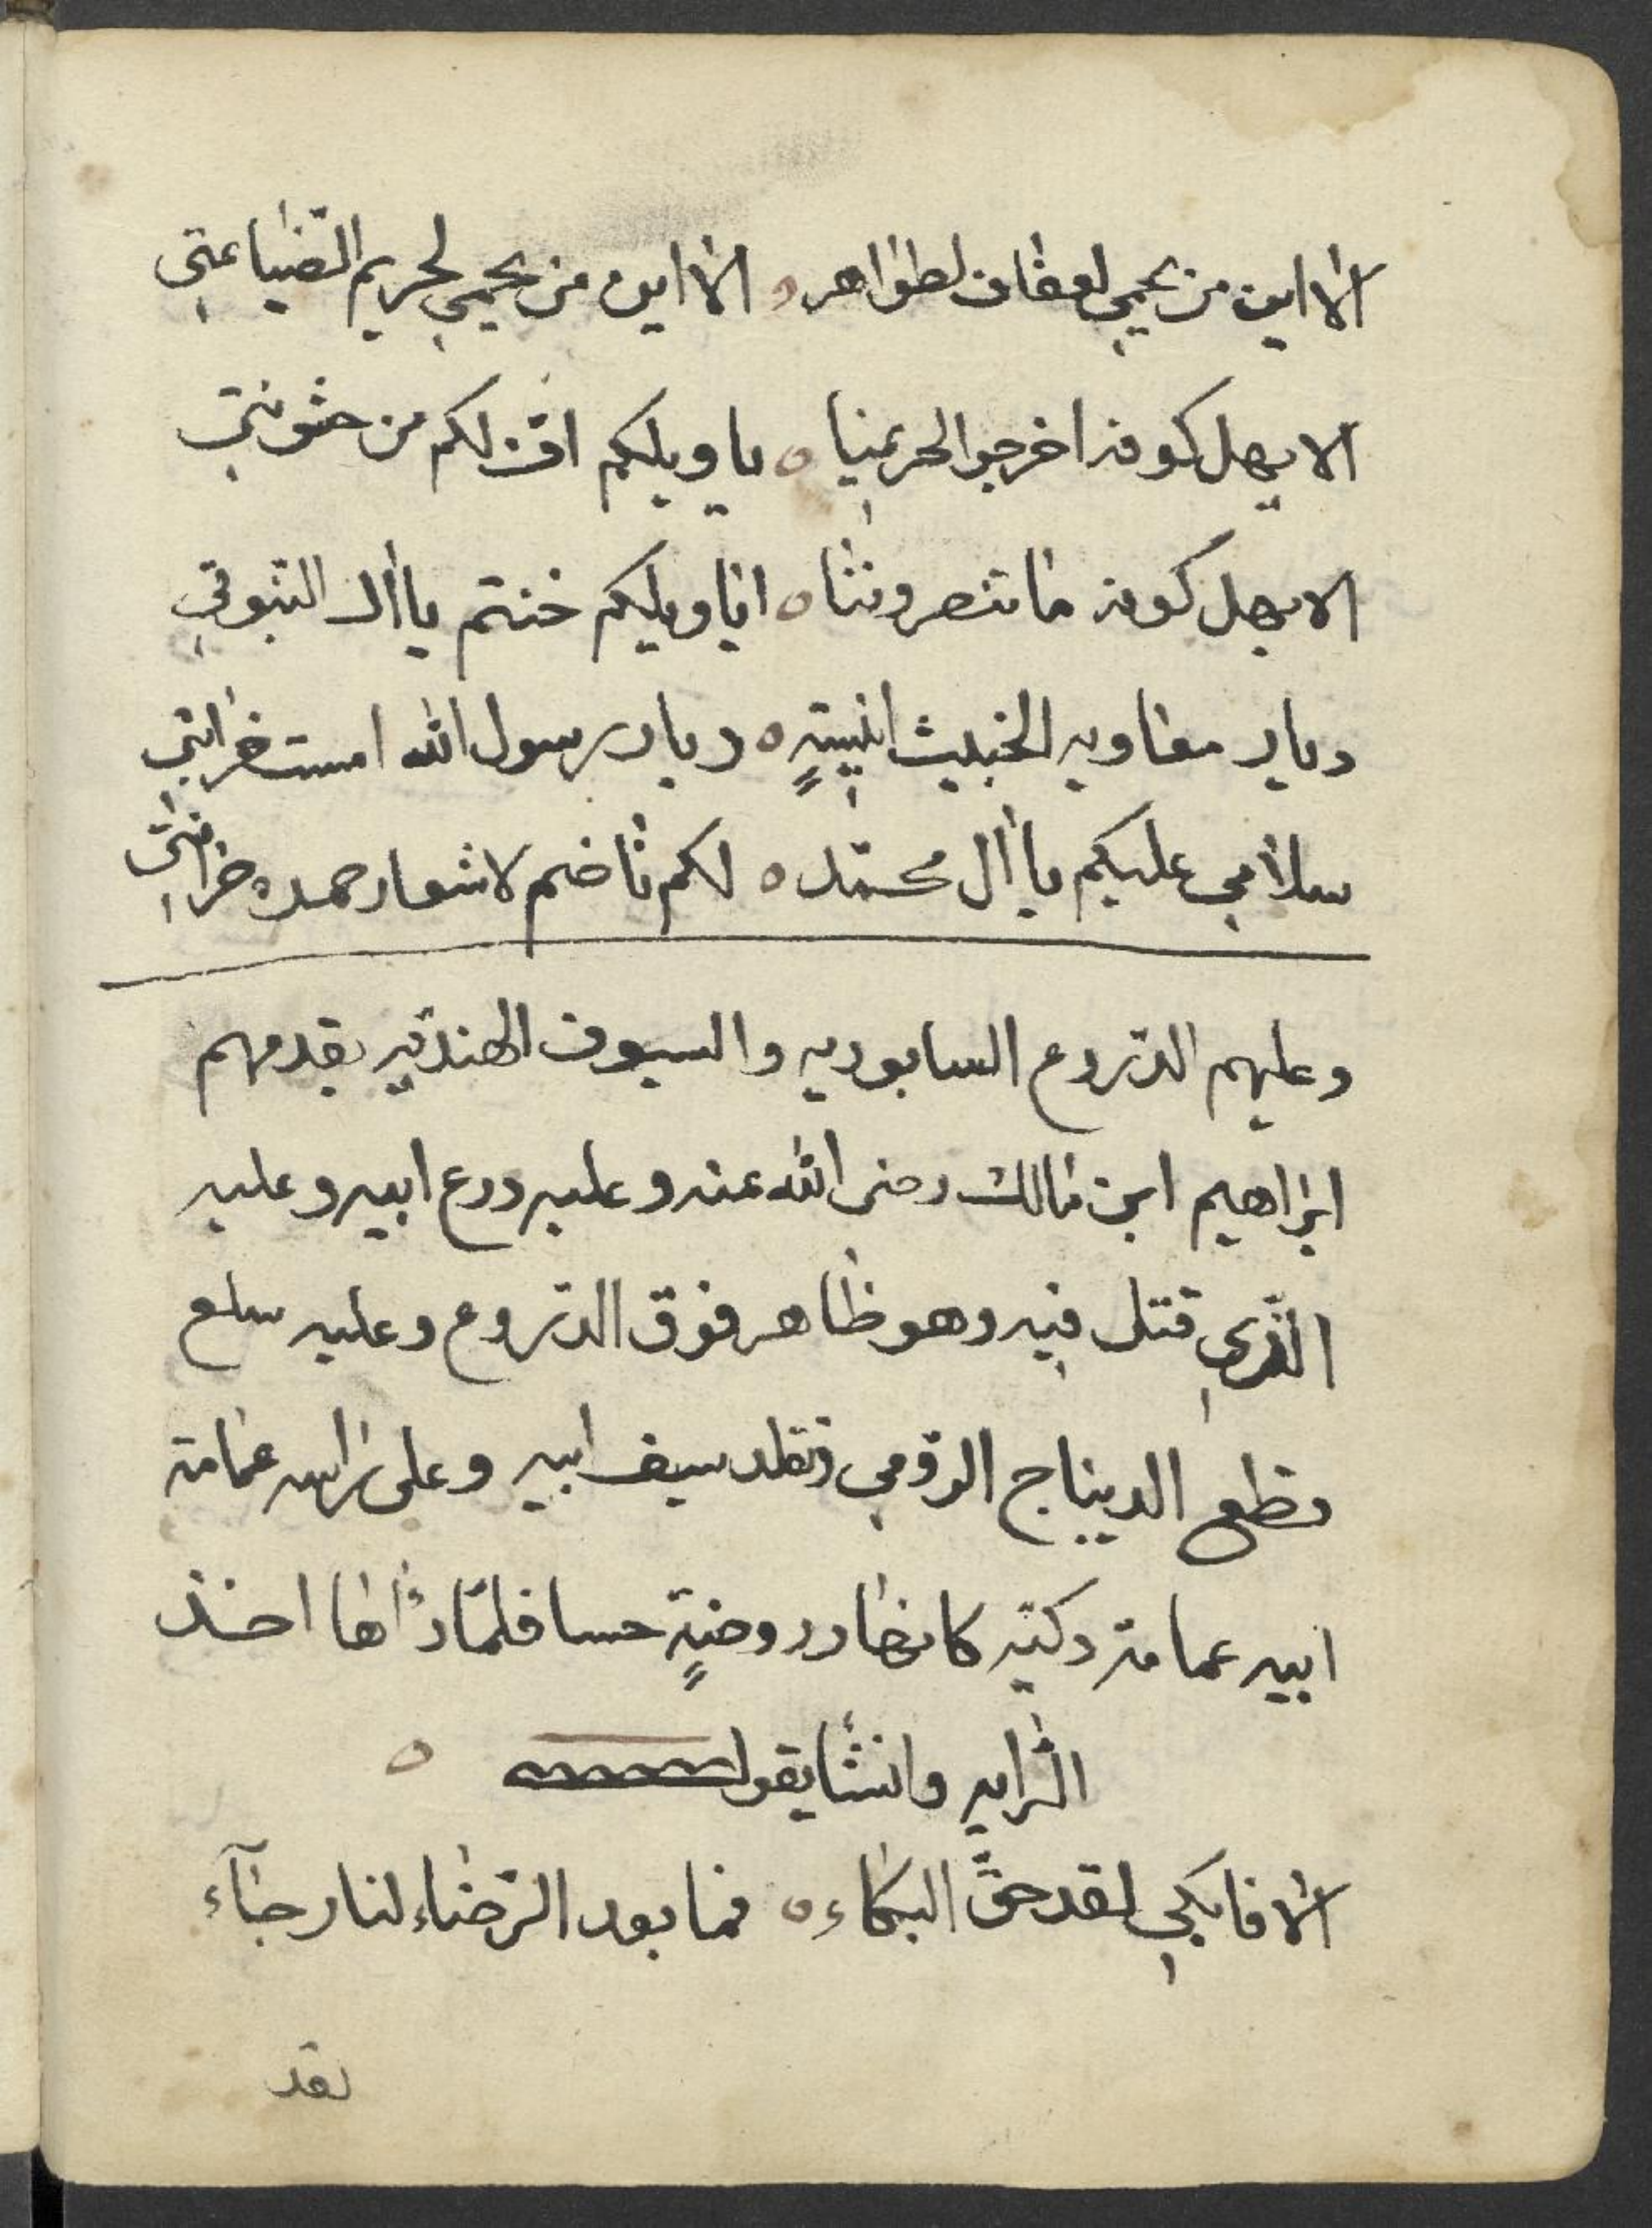 الا اين من يحمي لعفاف لطواهر ه الا اين من يحمي لحريم الضياعتي
الا يهل كوفه اخرجوا لحر يمنيا ه يا ويلكم اف لكم من خثونتي
الا يهل كوفه ما تنصروننا ه ايا ويلكم خنتم يا ال النبوتي
ديار معاويه الخبيث انيسةٍ ه ديار رسول الله امست خرابتي
سلامي عليكم يا ال محمد ه لكم ناضم لاشعار حمد
وعليهم الدروع السابوريه والسيوف الهنديه يقدمهم
ابراهيم ابن مالك رضى الله عنه وعليه درع ابيه وعليه
الذي قتل فيه وهو ظاهر فوق الدروع وعليه سلع
قطع الديباج الرومي وتقلد سيف ابيه وعلى راسه عمامة
ابيه عمامة دكنه كانها روضةٍ حسا فلما راها اخذ
الرايه وانشا يقول ه
الا فابكي لقد حق البكاء ه فما بعد الرخاء لنا رجآء
لقد